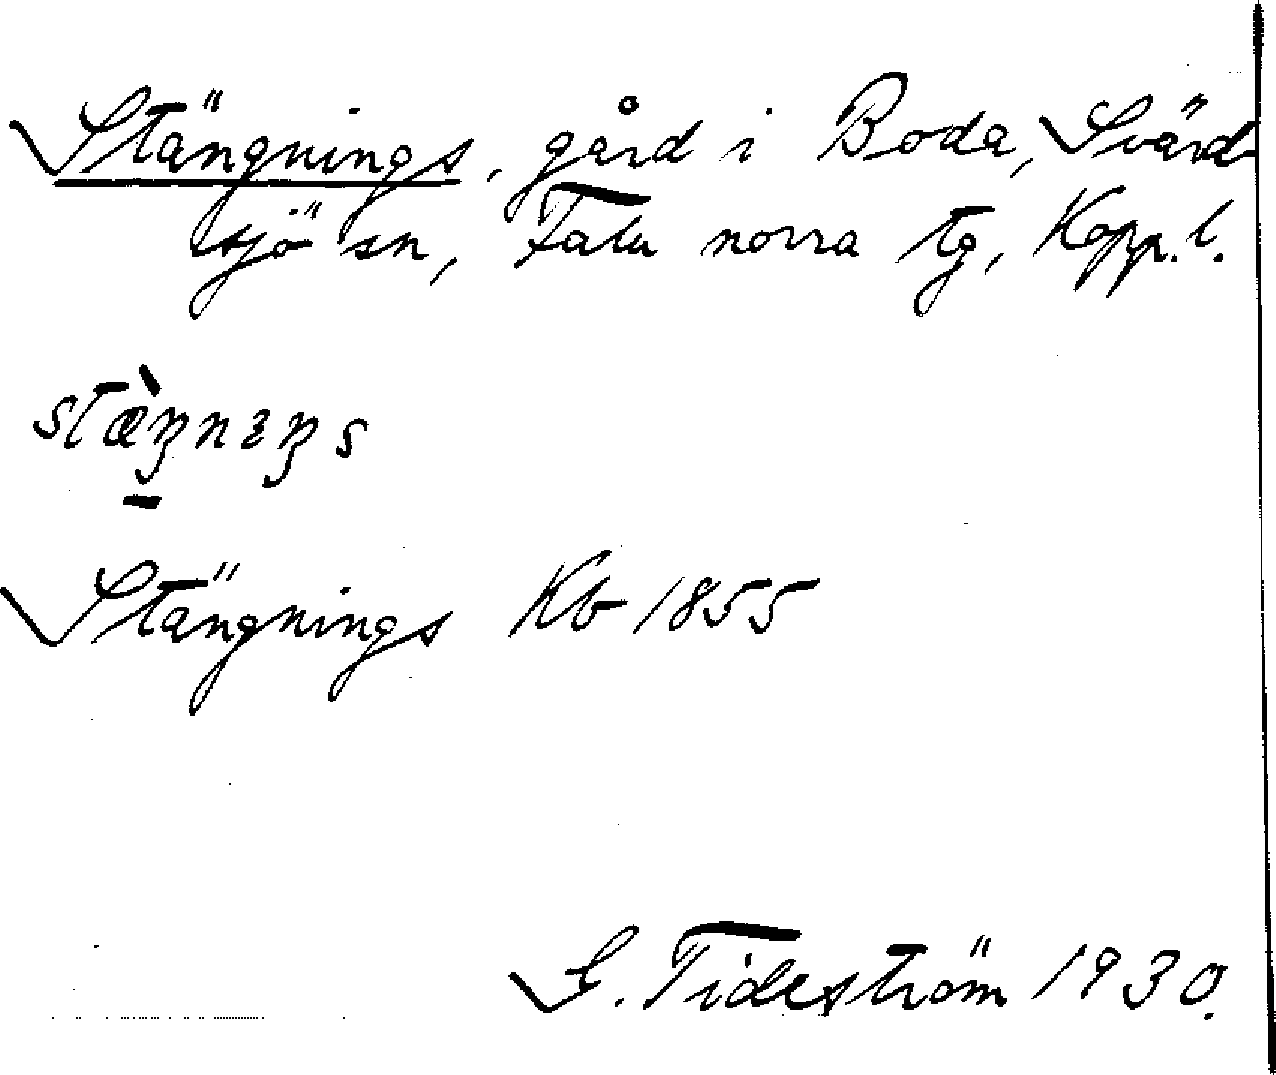 Stängnings, gård i Boda, Svärd-
sjö sn, Falu norra tg, Kopp. l.
Stängnings Kb 1855
S. Tideström 1930.